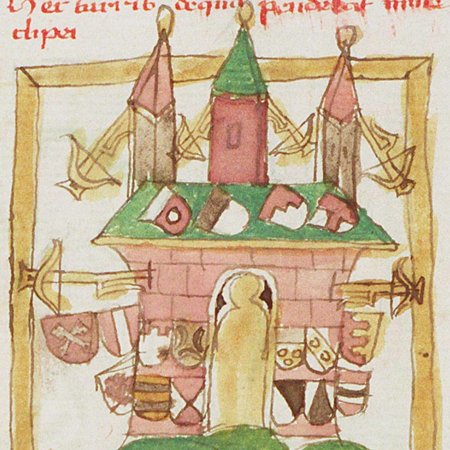 Hec turris dequa pendebāt mille
clipei